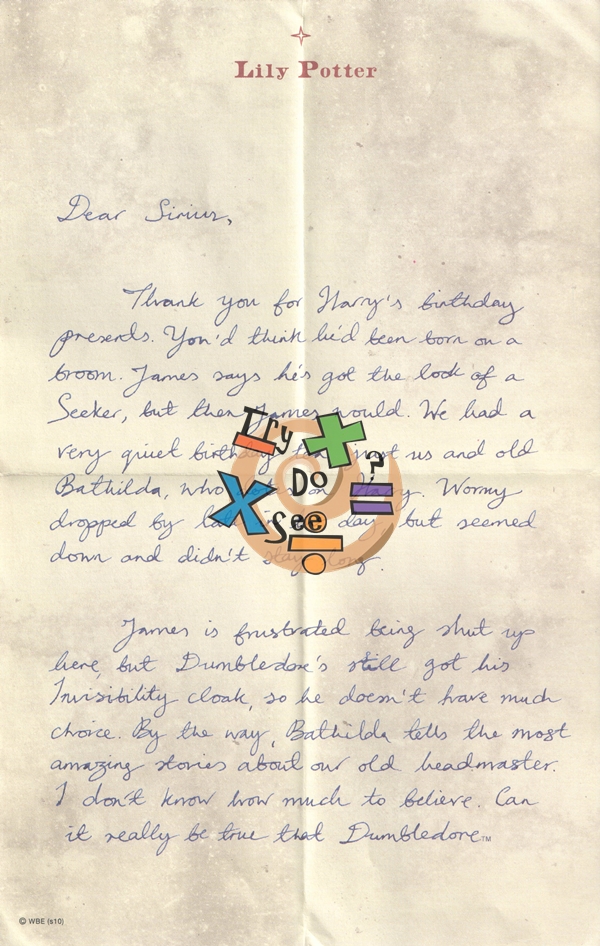 Lily Potter
Dear Sirius,
Thank you for Harry's birthday
presents. You'd think he'd been born on a
broom. James says he's got the look of a
Seeker, but then James would. We had a
very quiet birthday just us and old
Bathilda, who on Harry. Wormy
dropped by day but seemed
down and didn't stay long.
Try
Do
See
?
James is frustrated being shut up
here, but Dumbledore's still got his
Invisibility cloak, so he doesn't have much
choice. By the way, Bathilda tells the most
amazing stories about our old headmaster.
I don't know how much to believe. Can
it really be true that Dumbledore™
© WBE (s10)